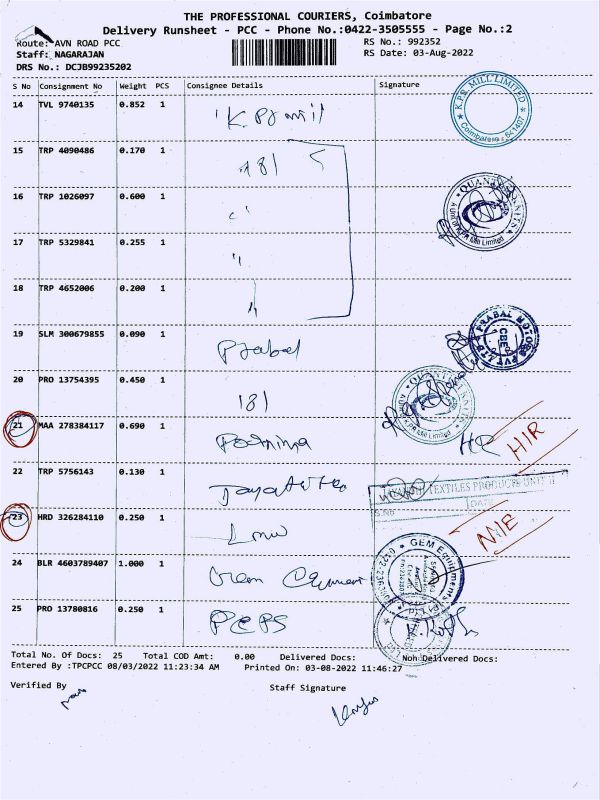 THE PROFESSIONAL COURIERS, Coimbatore
Delivery Runsheet - PCC - Phone No.:0422-3505555 - Page No.:2
Route: AVN ROAD PCC
Staff: NAGARAJAN
DRS No.: DCJB99235202
RS No.: 992352
RS Date: 03-Aug-2022
S No Consignment No Weight PCS Consignee Details Signature
14 TVL 9740135 0.852 1
K.P.R. MILL LIMITED
Coimbatore - 641407
15 TRP 4090486 0.170 1 181
16 TRP 1026097 0.600 1
QUANTUM KNITS
17 TRP 5329841 0.255 1
18 TRP 4652006 0.200 1
19 SLM 300679855 0.090 1 Prabal
PRABAL MOTORS PVT LTD
CBE
20 PRO 13754395 0.450 1 181
QUANTUM KNITS
21 MAA 278384117 0.690 1 HR HIR
22 TRP 5756143 0.130 1
TEXTILES PRODUCTS UNIT II
S.NO DATE
23 HRD 326284110 0.250 1 Lmw NIE
24 BLR 4603789407 1.000 1 Gem
GEM Equipments
25 PRO 13780816 0.250 1
Total No. Of Docs: 25 Total COD Amt: 0.00 Delivered Docs: Non Delivered Docs:
Entered By :TPCPCC 08/03/2022 11:23:34 AM Printed On: 03-08-2022 11:46:27
Verified By Staff Signature